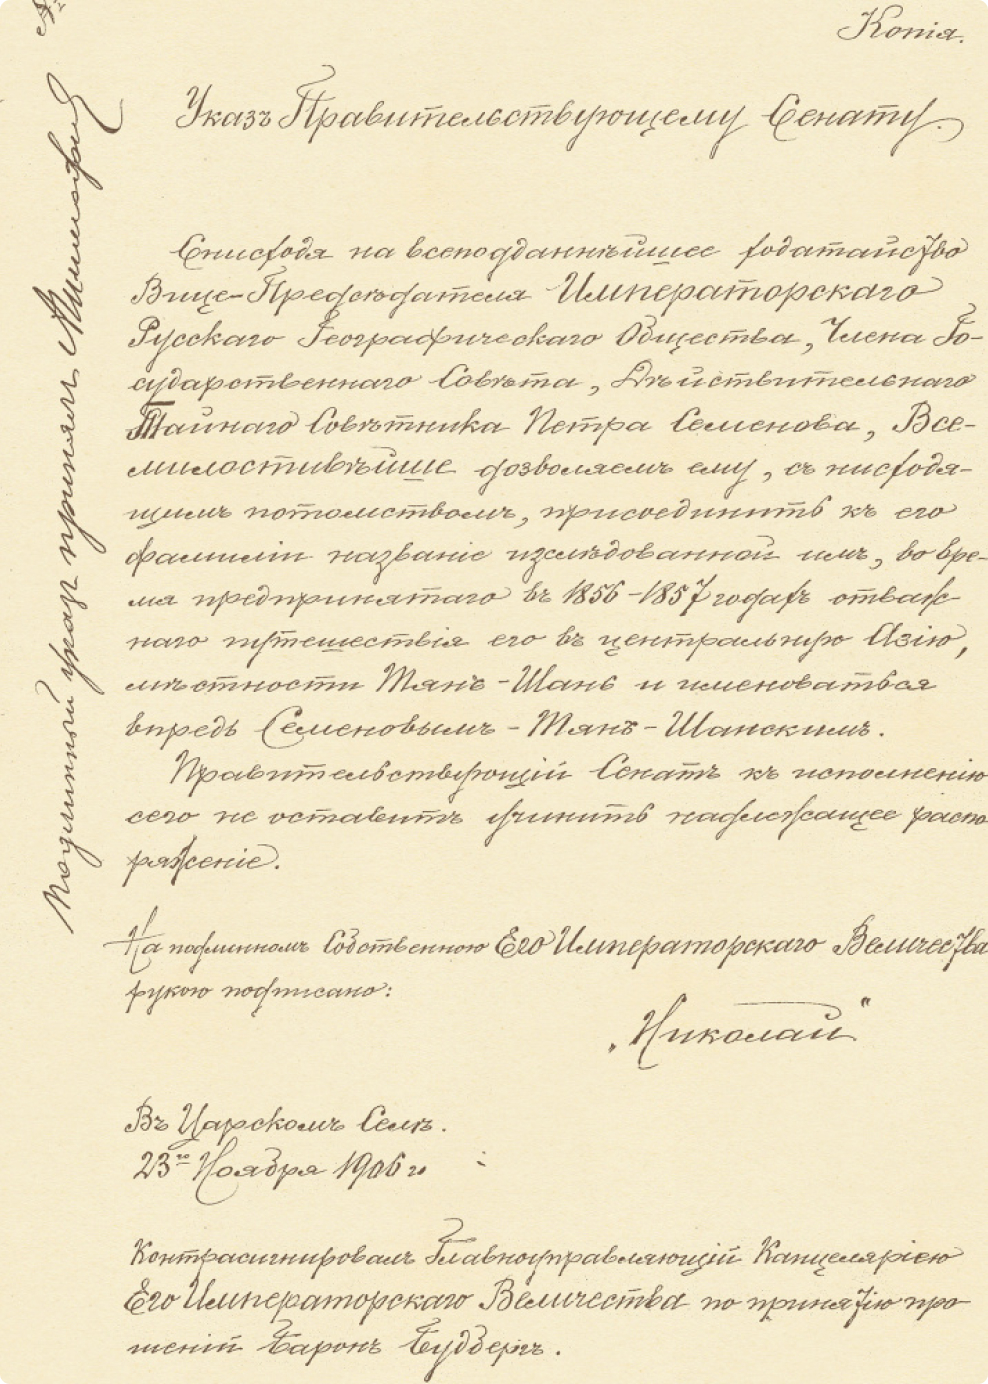 Копія.
Указъ Правительствующему Сенату.
Снисходя на всеподданнѣйшее ходатайство
Вице-Предсѣдателя Императорскаго
Русскаго Географическаго Общества, Члена Го-
сударственнаго Совѣта, Дѣйствительнаго
Тайнаго Совѣтника Петра Семенова, Все-
милостивѣйше дозволяемъ ему, съ нисходя-
щимъ потомствомъ, присоединить къ его
фамиліи названіе изслѣдованной имъ, во вре-
мя предпринятаго въ 1856-1857 годахъ отваж-
наго путешествія его въ центральную Азію,
мѣстности Тянь-Шань и именоваться
впредь Семеновымъ-Тянъ-Шанскимъ.
Правительствующій Сенатъ къ исполненію
сего не оставитъ учинить надлежащее распо
ряженіе.
На подлинномъ Собственною Его Императорскаго Величества
рукою подписано:
„Николай"
Въ Царскомъ Селѣ.
23го Ноября 1906 г.
Контрасигнировалъ Главноуправляющій Канцеляріею
Его Императорскаго Величества по принятію про
шеній Баронъ Будбергъ.
Подлинный указъ принялъ